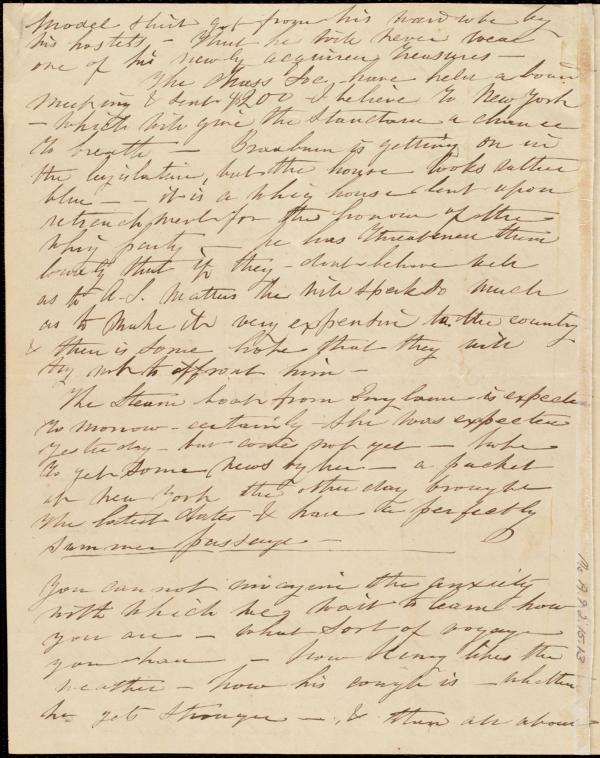 Model shirt got from his wardrobe by
his hostess — that he will never wear
one of his newly acquired treasures —
The Mass Soc. have held a board
meeting & sent $200 I believe to New York
— which will give the Standard a chance
to breath — Bradburn is getting on in
the legislature, but the house looks rather
blue — — it is a whig house bent upon
retrenchment for the honour of the
whig party — he has threatened them
that if they don't behave well
as to A.S. matters he will speak so much
as to make it very expensive to the county
& there is some hope that they will
try not to affront him —
The Steam boat from England is expected
to morrow — certainly — she was expected
yesterday — but come not yet — hope
to get some news by her — a packet
at New York the other day brought
the latest dates & had a perfectly
summer passage —
You cannot imagine the anxiety
with which we wait to learn how
you are — what sort of voyage
you have — how Henry likes the
weather — how his cough is — whether
he gets stronger — & then all about
Ms. A. 9. 2. 15. 13